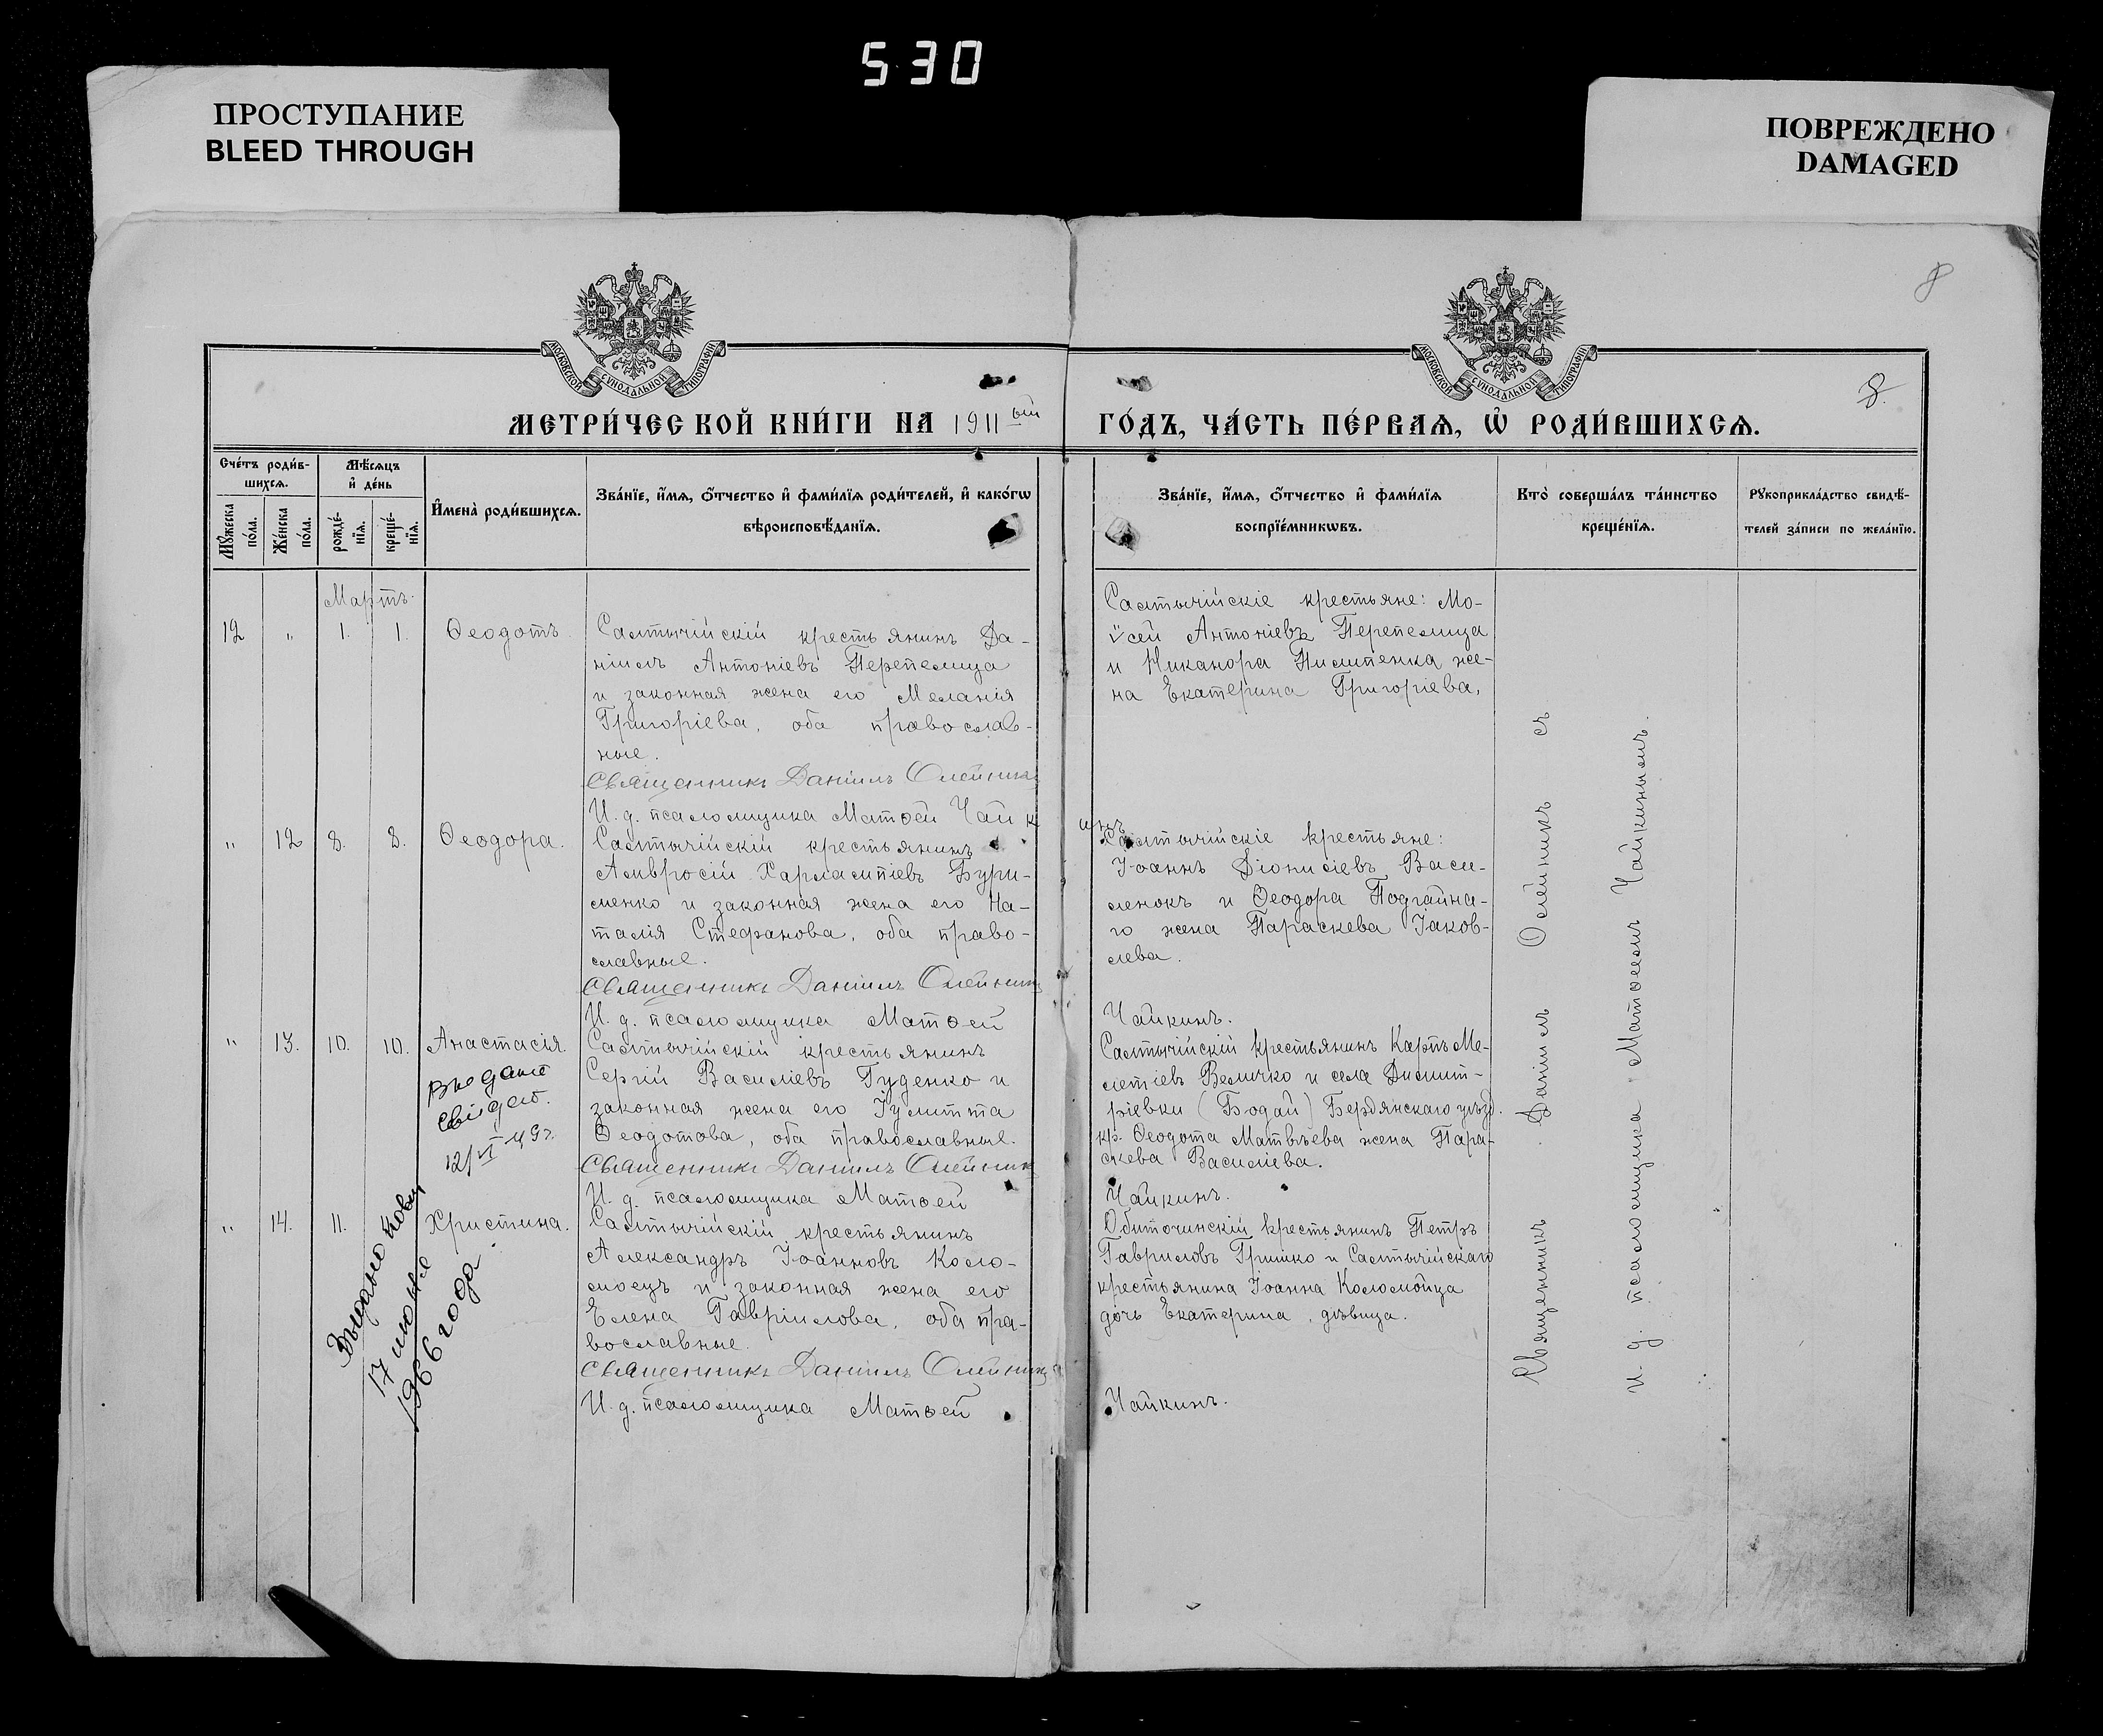 530
ПРОСТУПАНИЕ
BLEED THROUGH
ПОВРЕЖДЕНО
DAMAGED
8
8.
МОСКОВСКОЙ СУНОДАЛЬНОЙ ТИПОГРАФІИ
МОСКОВСКОЙ СУНОДАЛЬНОЙ ТИПОГРАФІИ
МЕТРИ́ЧЕСКОЙ КНИ́ГИ НА 1911ый ГО́ДЪ, ЧА́СТЬ ПЕ́РВАѦ, Ѡ҆ РОДИ́ВШИХСѦ.
Сче́тъ роди́в-
шихсѧ.
Мꙋ́жеска по́ла.
Же́нска по́ла.
Мѣ́сѧцъ
и҆ де́нь
рожде́-
нїѧ.
креще́-
нїѧ.
И҆мена̀ роди́вшихсѧ.
Зва́нїе, и҆́мѧ, ѻ҆́тчество и҆ фами́лїѧ роди́телей, и҆ како́гѡ
вѣроисповѣ́данїѧ.
Зва́нїе, и҆́мѧ, ѻ҆́тчество и҆ фами́лїѧ
воспрїе́мникѡвъ.
Кто̀ соверша́лъ та́инство
креще́нїѧ.
Рꙋкоприкла́дство свидѣ́-
телей за́писи по жела́нїю.
Мартъ.
12 " 1. 1. Ѳеодотъ
Салтычійскій крестьянинъ Да-
ніилъ Антоніевъ Перепелица
и законная жена его Меланія
Григоріева, оба православ-
ные.
Священникъ Даніилъ Олейникъ
И. д. псаломщика Матѳей Чайкинъ
Салтычійскіе крестьяне: Мо-
ѵсей Антоніевъ Перепелица
и Никанора Пилипенка же-
на Екатерина Григоріева,
" 12 8. 8. Ѳеодора.
Салтычійскій крестьянинъ
Амвросій Харлампіевъ Бури-
менко и законная жена его На-
талія Стефанова, оба право-
славные.
Священникъ Даніилъ Олейникъ
И. д. псаломщика Матѳей Чайкинъ.
Салтычійскіе крестьяне:
Іоаннъ Діонисіевъ Васи-
ленокъ и Ѳеодора Подгайна-
го жена Параскева Іаков-
лева.
" 13. 10. 10. Анастасія.
Выдано
свидет.
12/VI-49г.
Салтычійскій крестьянинъ
Сергій Василіевъ Гуденко и
законная жена его Іулитта
Ѳеодотова, оба православные.
Священникъ Даніилъ Олейникъ
И. д. псаломщика Матѳей Чайкинъ.
Салтычійскій крестьянинъ Карпъ Ме-
летіевъ Величко и села Димит-
ріевки (Бодай) Бердянскаго уѣзд.
кр. Ѳеодота Матвѣева жена Пара-
скева Василіева.
" 14. 11. Христина.
17 июня
1966 года
Салтычійскій крестьянинъ
Александръ Іоанновъ Коло-
моецъ и законная жена его
Елена Гавріилова, оба пра-
вославные.
Священникъ Даніилъ Олейникъ
И. д. псаломщика Матѳей Чайкинъ.
Обиточинскій крестьянинъ Петръ
Гавриловъ Гришко и Салтычійскаго
крестьянина Іоанна Коломойца
дочь Екатерина, дѣвица.
Священникъ Даніилъ Олейникъ съ
И. д. псаломщика Матѳеемъ Чайкинымъ.